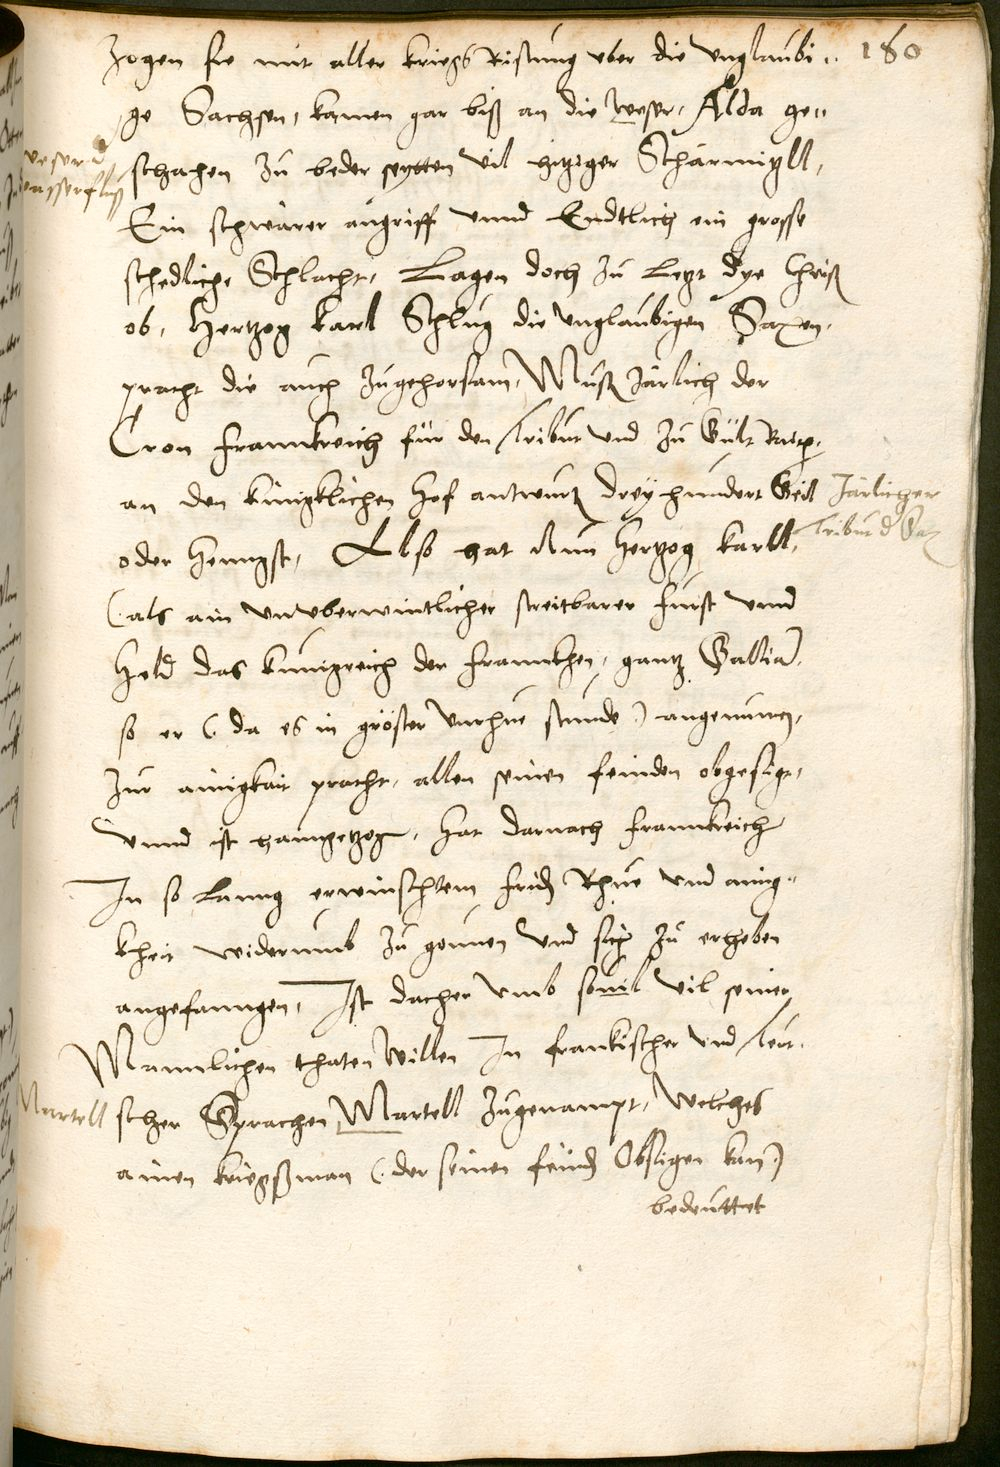 180
zogen sie mit aller kriegs Ristung vber die vnglaubi„
ge Sachsen, kamen gar biß an die weser, Alda ge„
weser d
wasserfluß
schahen zu beder seytten vil hitziger Scharmizll,
Ein schwärer angriff vnnd Endtlich ein grosse
schedliche Schlacht, Lagen doch zu Letzt dye Chriß
ob, Hertzog karl Schlug die vnglaubigen Saxen,
pracht die auch zugehorsam, Mußt Järlich der
Cron franckreich für den tribut vnd zu Gült
an den künigklichen Hof antwurtn dreyhundert Geil
Järlicher
tribut d Sax
oder Henngst, Also hat Nun Hertzog karll,
(:als ain vnvberwintlicher streitbarer fürst vnnd
Held das künigreich der franncken, gantz Gallia,
so er (: da es in gröster vnrhue stunde :) angenumen,
zur ainigkait pracht, allen seinen feinden obgesigt,
vnnd ist haimgetzogen, Hat darnach franckreich
In so Lanng erwinschtem frid Rhue vnd ainig„
kheit widerumb zu gonnen vnd sich zu erheben
angefanngen, Ist dacher vmb souil vil seiner
Mannlichen thaten willen In frankischer vnd teut„
Martell
scher Sprachen, Martell zugenampt, Welches
ainen kriegßman (: der seinen feind Obsigen kan :)
bedeuttet